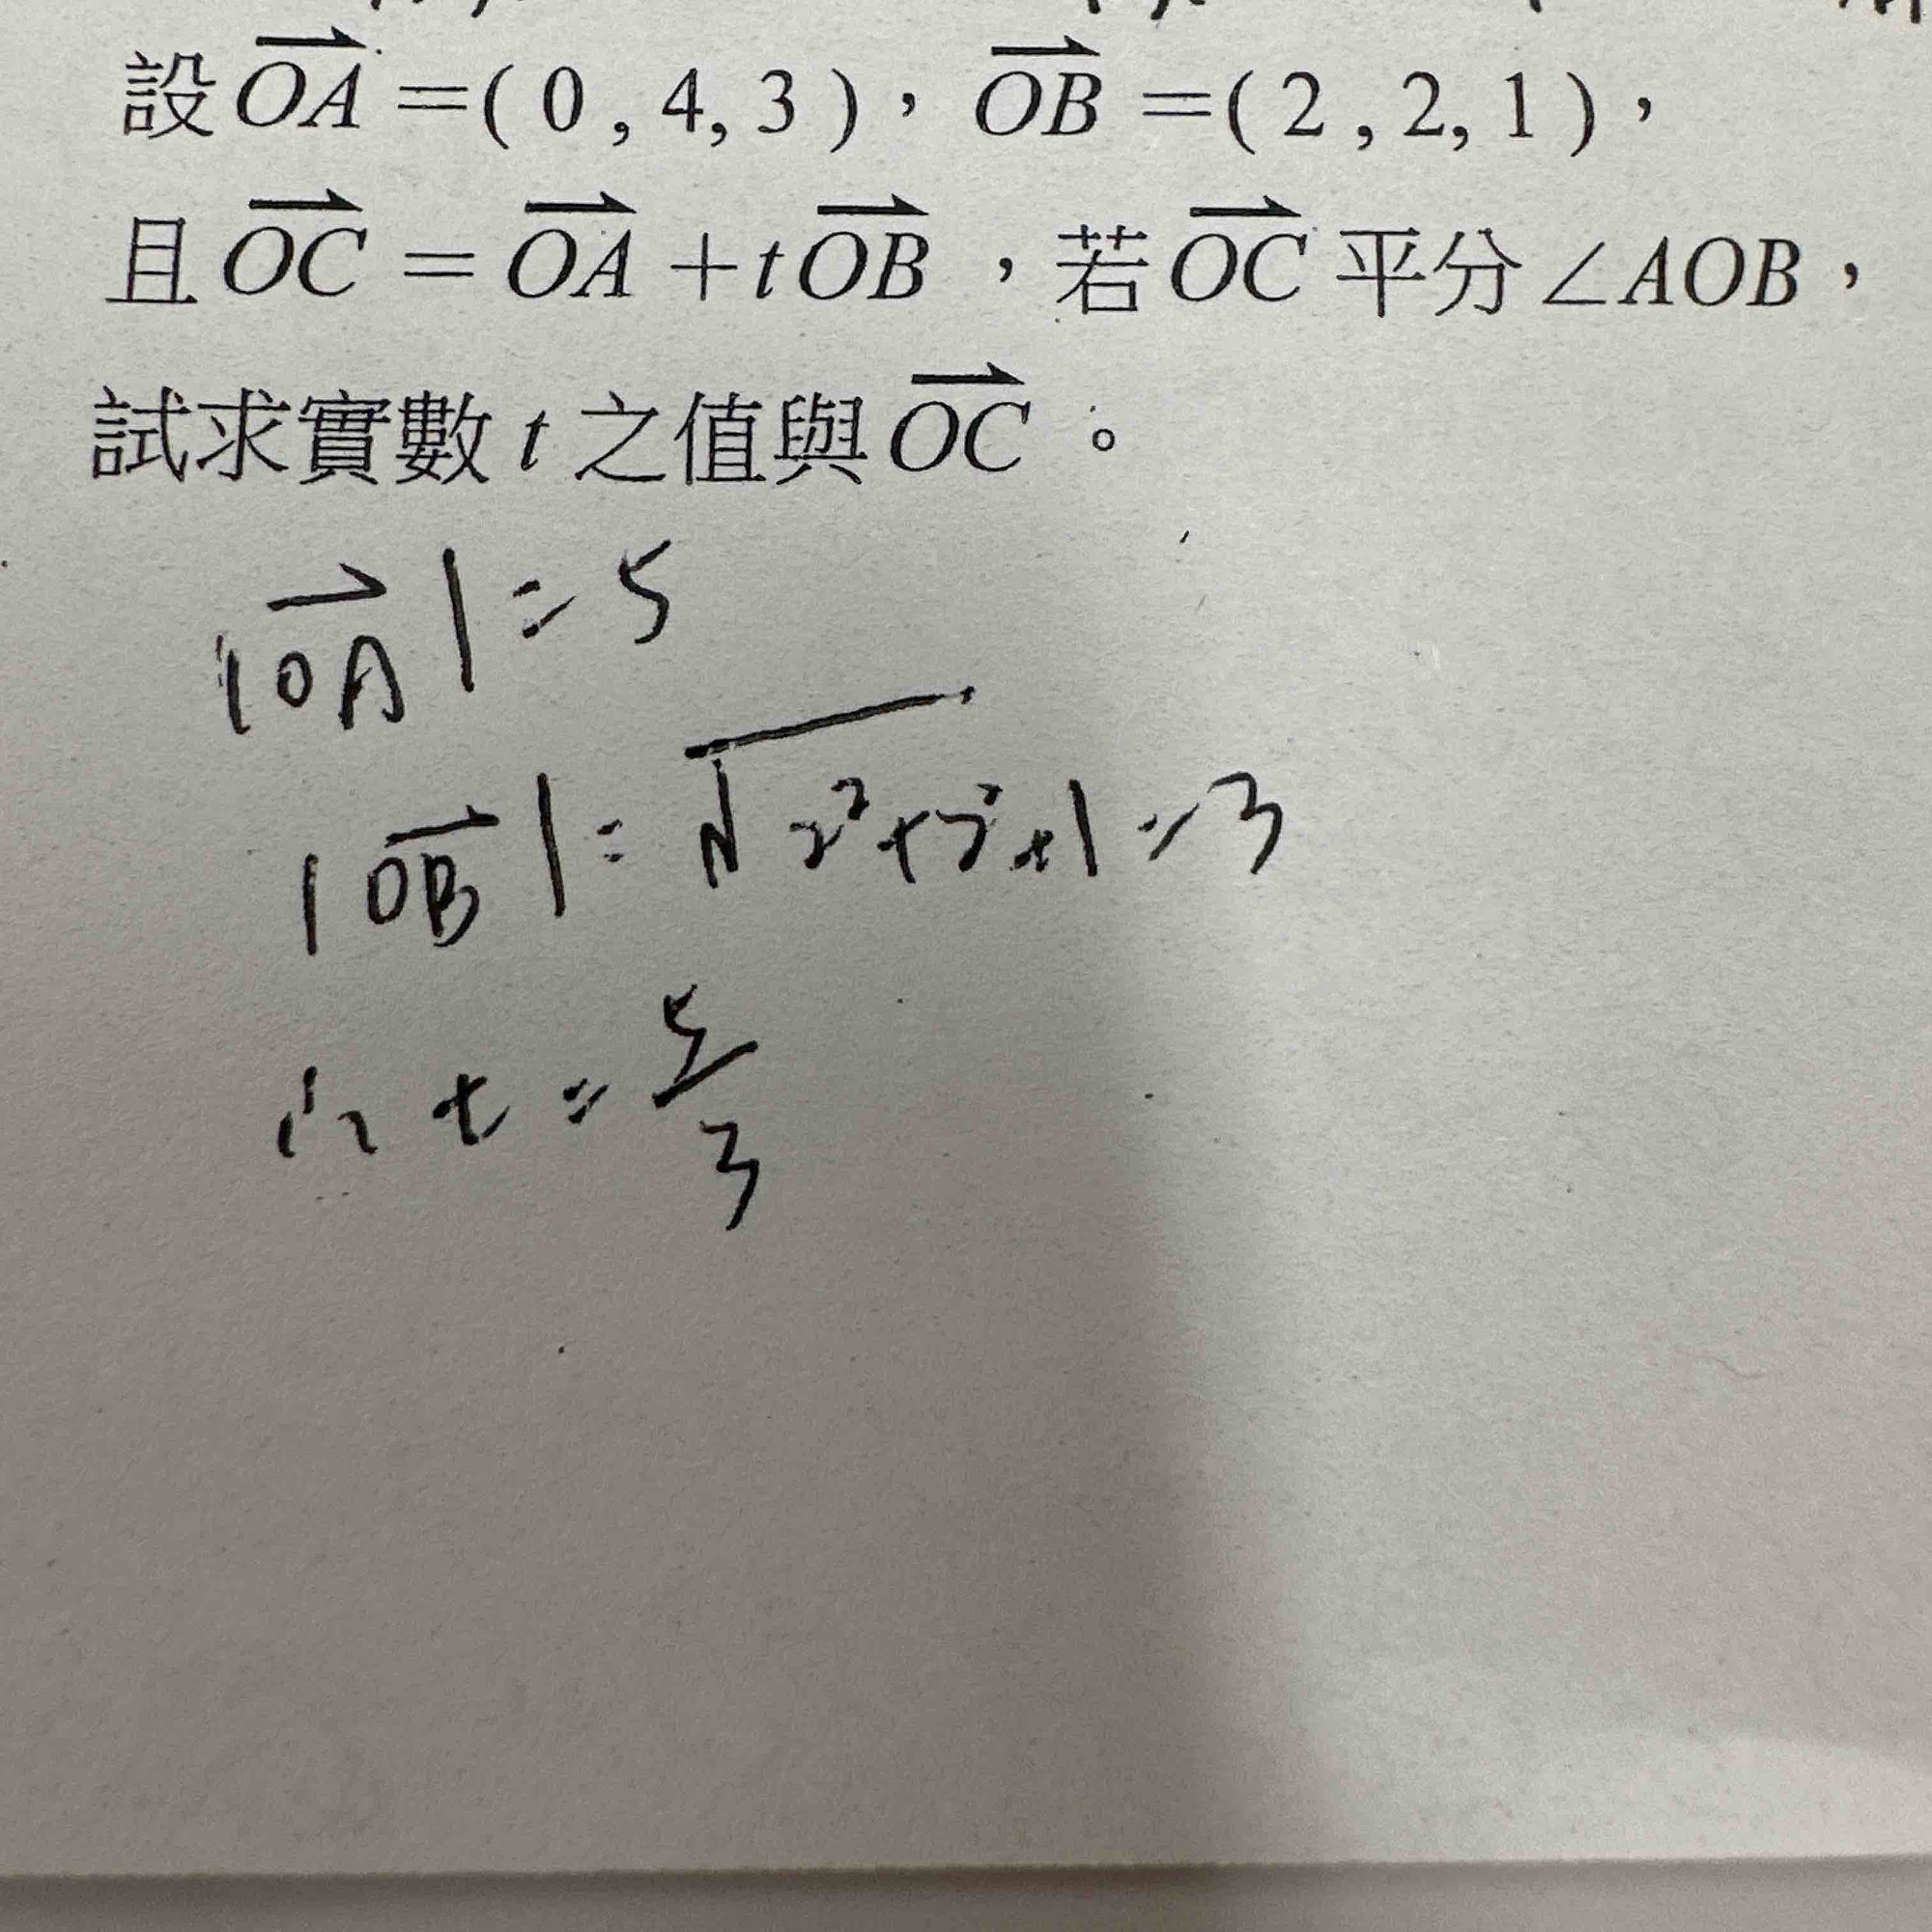 設 OA =( 0 , 4, 3 )，OB =( 2 , 2, 1 )，
且 OC = OA + t OB ，若 OC 平分∠AOB，
試求實數 t 之值與 OC 。
|OA| = 5
|OB| = √2²+2²+1 = 3
t = 5/3